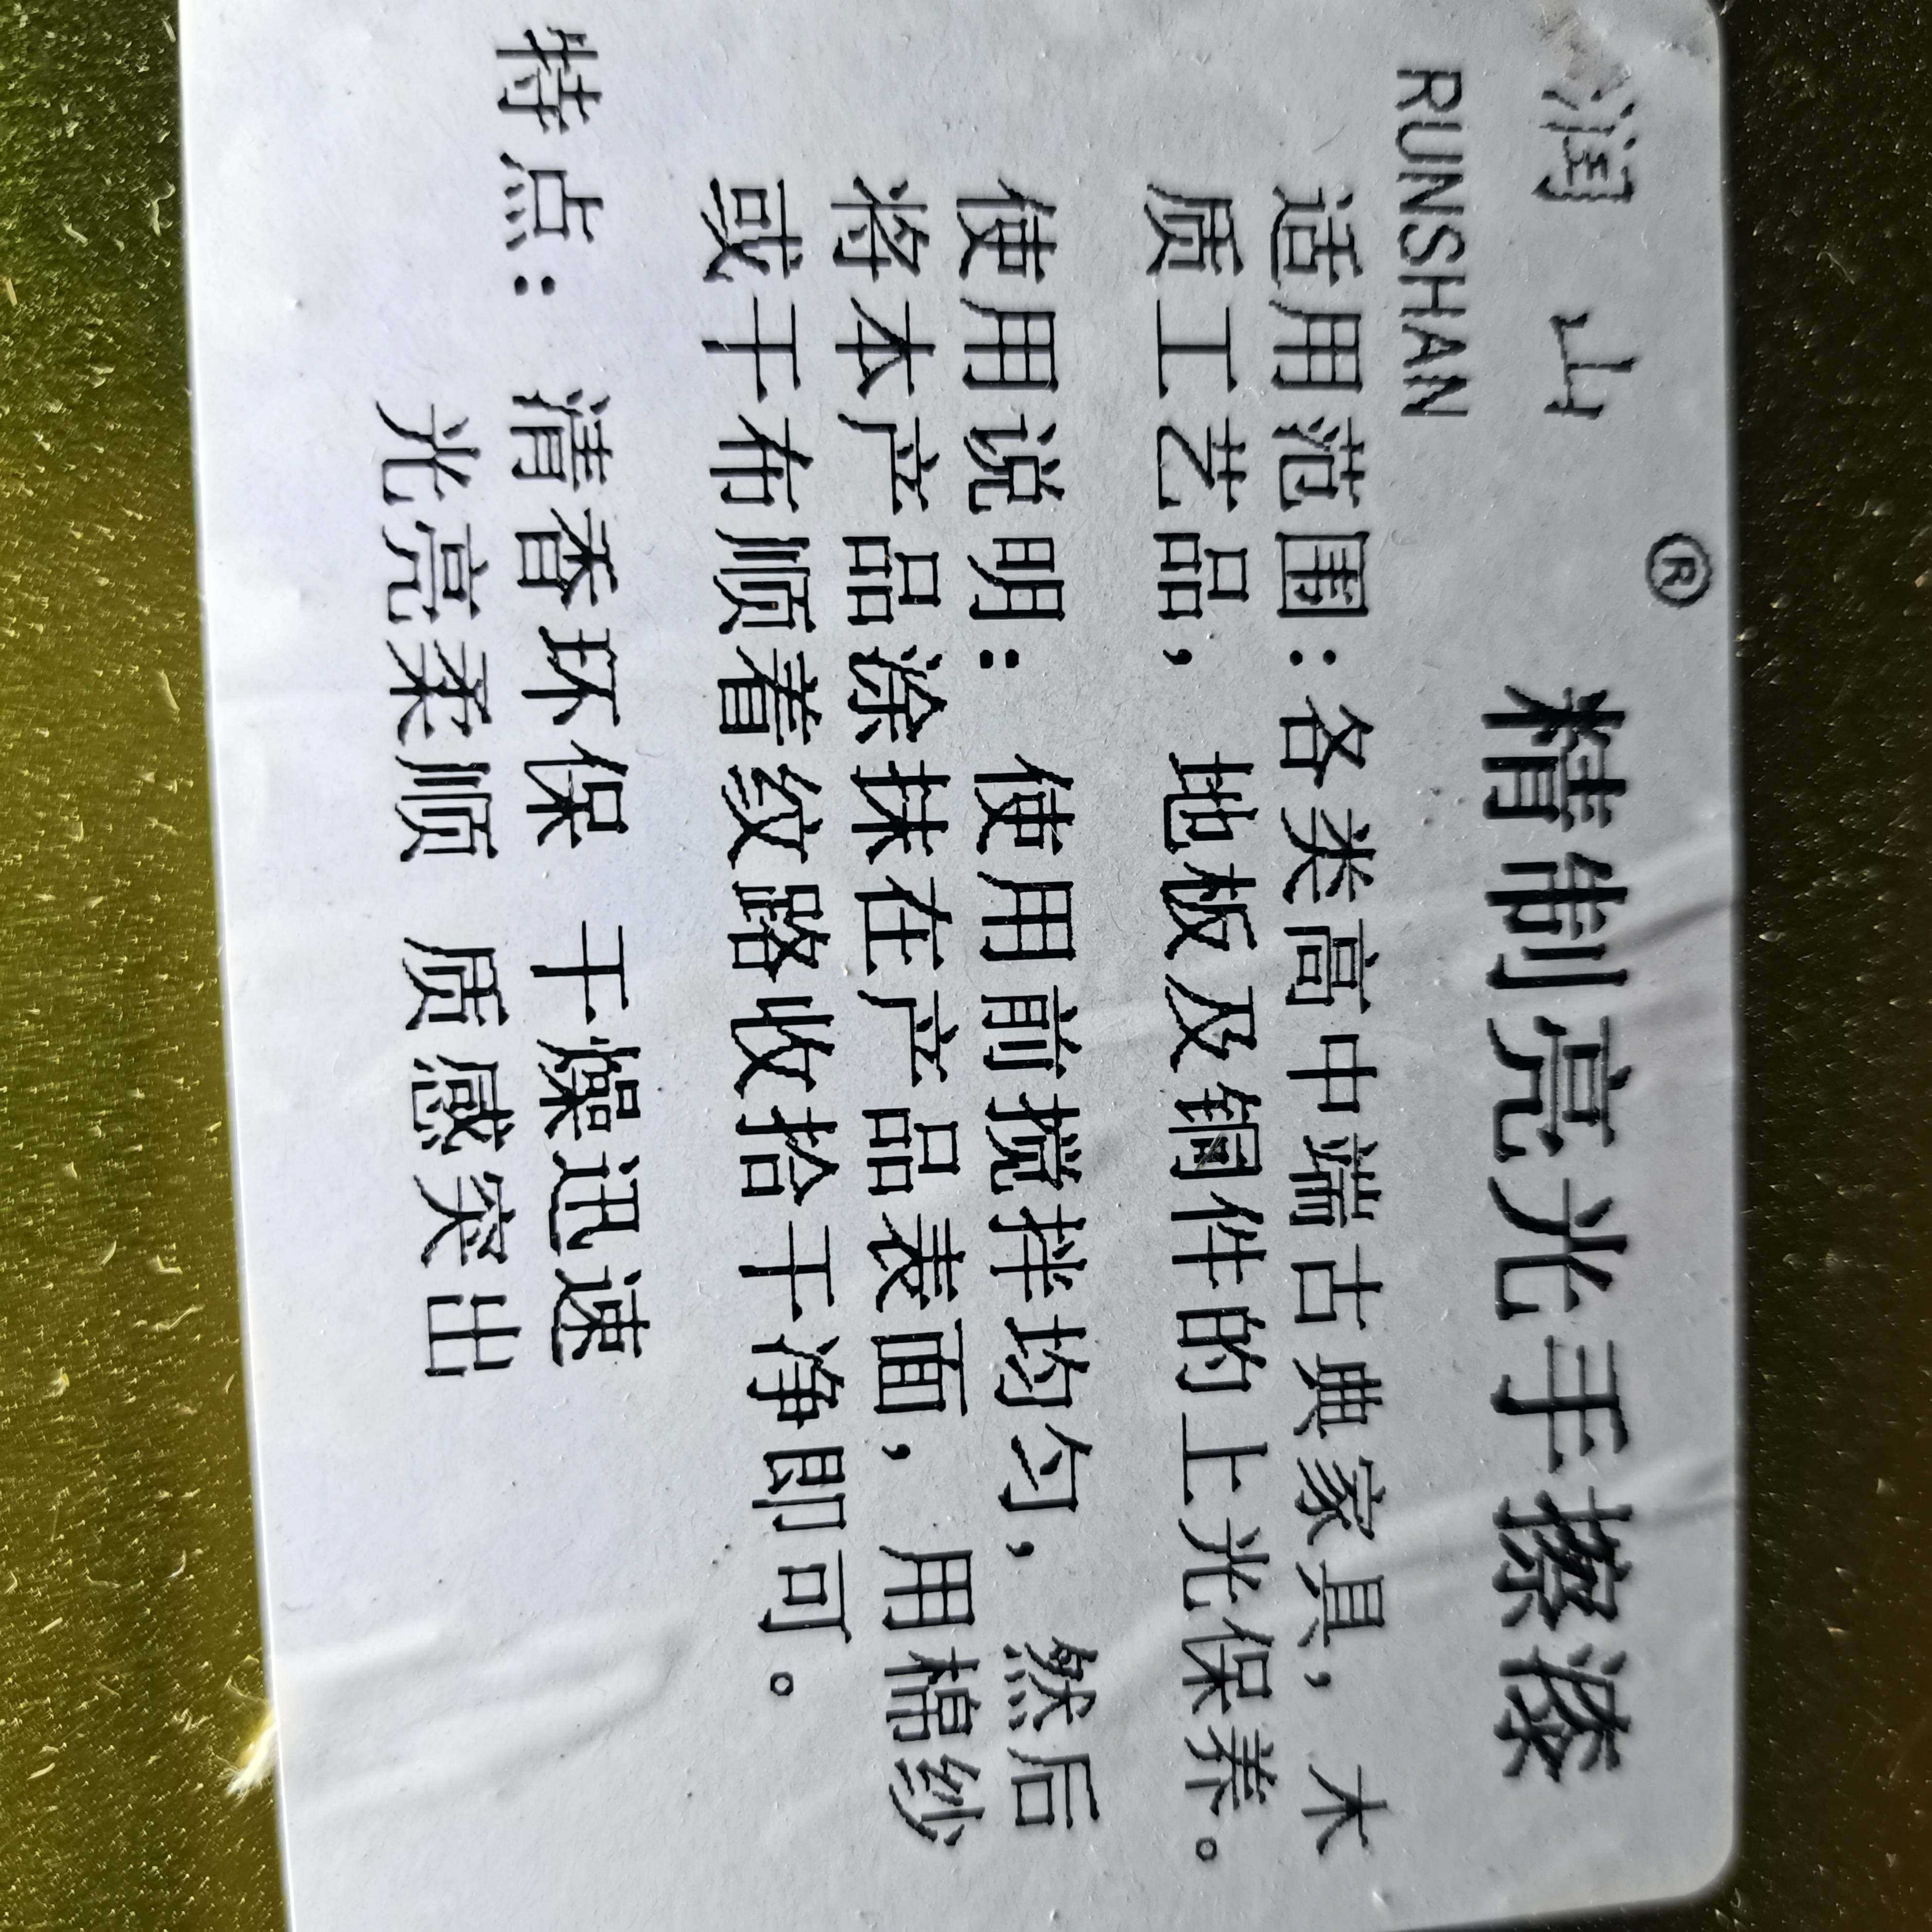 润 山 ®
RUNSHAN
精制亮光手擦漆
适用范围：各类高中端古典家具，木
质工艺品，地板及铜件的上光保养。
使用说明：使用前搅拌均匀，然后
将本产品涂抹在产品表面，用棉纱
或干布顺着纹路收拾干净即可。
特点：清香环保 干燥迅速
光亮柔顺 质感突出